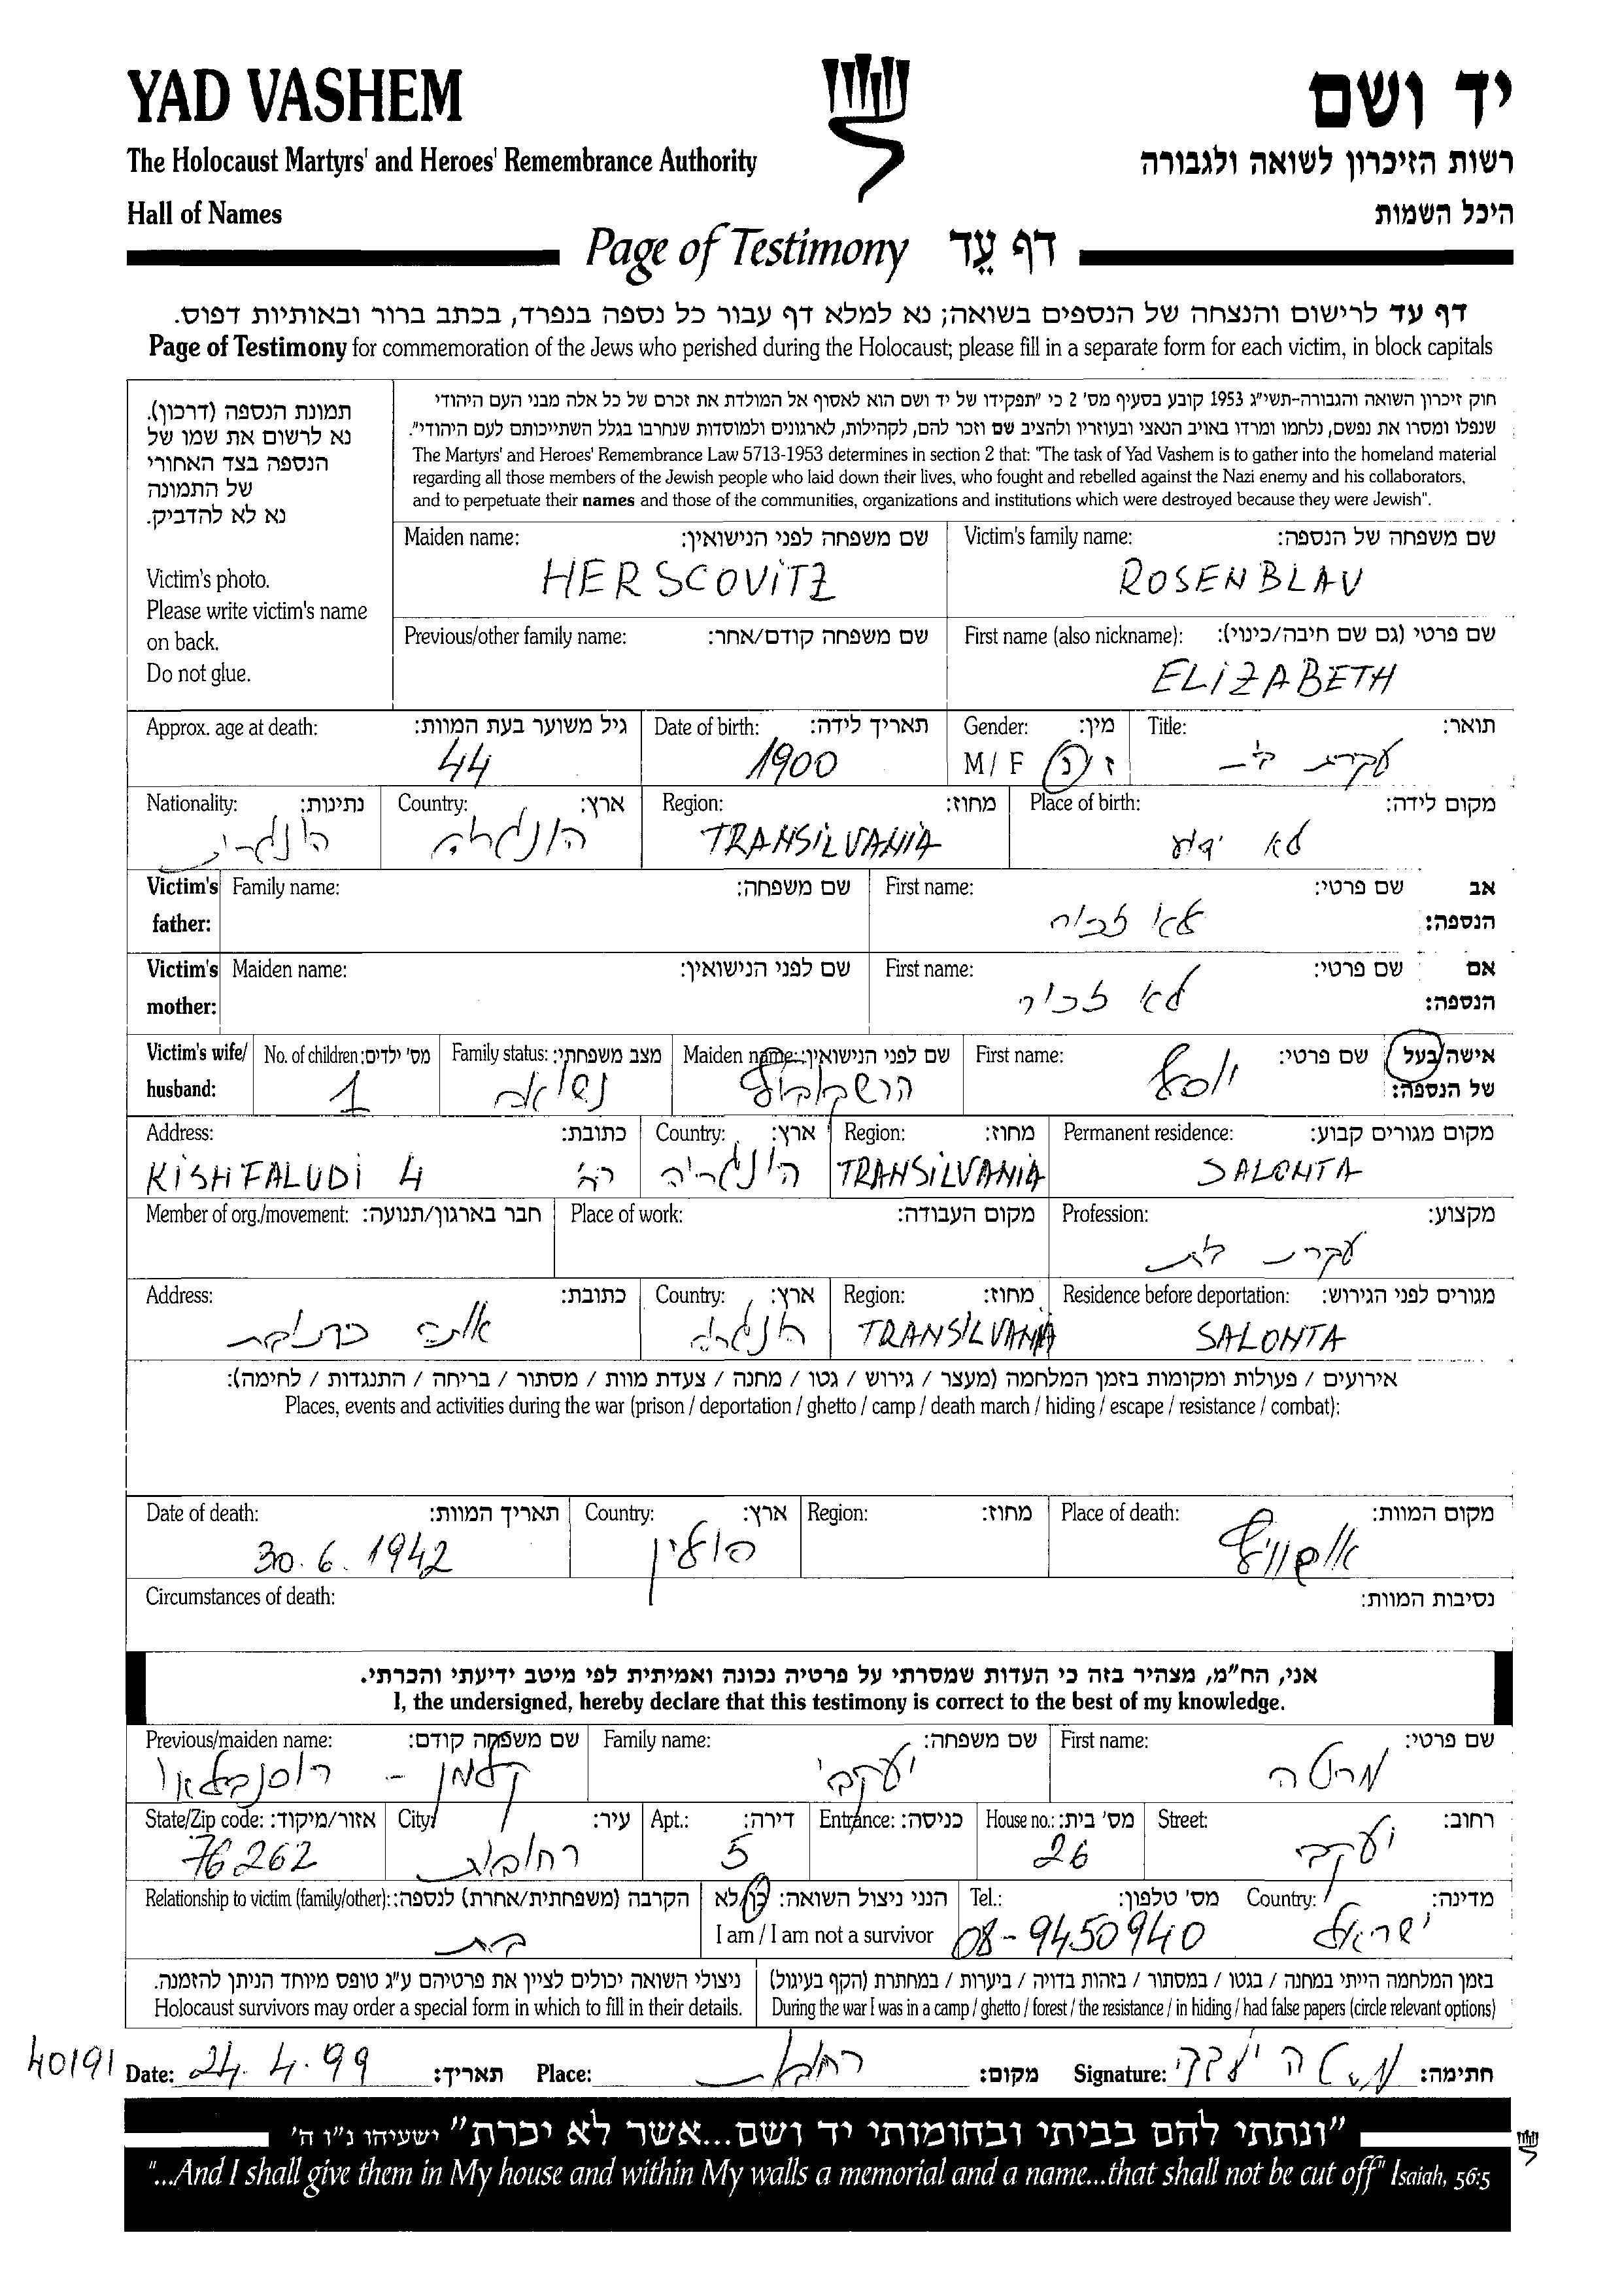 YAD VASHEM
יד ושם
The Holocaust Martyrs' and Heroes' Remembrance Authority
רשות הזיכרון לשואה ולגבורה
Hall of Names
היכל השמות
Page of Testimony דף עֵד
דף עד לרישום והנצחה של הנספים בשואה; נא למלא דף עבור כל נספה בנפרד, בכתב ברור ובאותיות דפוס.
Page of Testimony for commemoration of the Jews who perished during the Holocaust; please fill in a separate form for each victim, in block capitals
תמונת הנספה (דרכון).
נא לרשום את שמו של
הנספה בצד האחורי
של התמונה
נא לא להדביק.
Victim's photo.
Please write victim's name
on back.
Do not glue.
חוק זיכרון השואה והגבורה-תשי"ג 1953 קובע בסעיף מס' 2 כי "תפקידו של יד ושם הוא לאסוף אל המולדת את זכרם של כל אלה מבני העם היהודי
שנפלו ומסרו את נפשם, נלחמו ומרדו באויב הנאצי ובעוזריו ולהציב שם וזכר להם, לקהילות, לארגונים ולמוסדות שנחרבו בגלל השתייכותם לעם היהודי".
The Martyrs' and Heroes' Remembrance Law 5713-1953 determines in section 2 that: "The task of Yad Vashem is to gather into the homeland material
regarding all those members of the Jewish people who laid down their lives, who fought and rebelled against the Nazi enemy and his collaborators,
and to perpetuate their names and those of the communities, organizations and institutions which were destroyed because they were Jewish".
Maiden name: שם משפחה לפני הנישואין:
HERSCOVITZ
Victim's family name: שם משפחה של הנספה:
ROSENBLAU
Previous/other family name: שם משפחה קודם/אחר:
First name (also nickname): שם פרטי (גם שם חיבה/כינוי):
ELIZABETH
Approx. age at death: גיל משוער בעת המוות:
44
Date of birth: תאריך לידה:
1900
Gender: מין:
M / F ז / נ
Title: תואר:
עקרת בית
Nationality: נתינות:
הונגרית
Country: ארץ:
הונגריה
Region: מחוז:
TRANSILVANIA
Place of birth: מקום לידה:
לא ידוע
Victim's father: Family name: שם משפחה:
First name: שם פרטי: אב הנספה:
לא זכור
Victim's mother: Maiden name: שם לפני הנישואין:
First name: שם פרטי: אם הנספה:
לא זכור
Victim's wife/ husband: No. of children: מס' ילדים:
1
Family status: מצב משפחתי:
נשואה
Maiden name: שם לפני הנישואין:
הרשקוביץ
First name: שם פרטי: אישה/בעל של הנספה:
יוסף
Address: כתובת:
KISHFALUDI 4 רח'
Country: ארץ:
הונגריה
Region: מחוז:
TRANSILVANIA
Permanent residence: מקום מגורים קבוע:
SALONTA
Member of org./movement: חבר בארגון/תנועה:
Place of work: מקום העבודה:
Profession: מקצוע:
עקרת בית
Address: כתובת:
אותה כתובת
Country: ארץ:
הונגריה
Region: מחוז:
TRANSILVANIA
Residence before deportation: מגורים לפני הגירוש:
SALONTA
אירועים / פעולות ומקומות בזמן המלחמה (מעצר / גירוש / גטו / מחנה / צעדת מוות / מסתור / בריחה / התנגדות / לחימה):
Places, events and activities during the war (prison / deportation / ghetto / camp / death march / hiding / escape / resistance / combat):
Date of death: תאריך המוות:
30.6.1942
Country: ארץ:
פולין
Region: מחוז:
Place of death: מקום המוות:
אושוויץ
Circumstances of death: נסיבות המוות:
אני, הח"מ, מצהיר בזה כי העדות שמסרתי על פרטיה נכונה ואמיתית לפי מיטב ידיעתי והכרתי.
I, the undersigned, hereby declare that this testimony is correct to the best of my knowledge.
Previous/maiden name: שם משפחה קודם:
קלמן - רוסנבלאו
Family name: שם משפחה:
יעקבי
First name: שם פרטי:
מרטה
State/Zip code: אזור/מיקוד:
76262
City: עיר:
רחובות
Apt.: דירה:
5
Entrance: כניסה:
House no.: מס' בית:
26
Street: רחוב:
יעקב
Relationship to victim (family/other): הקרבה (משפחתית/אחרת) לנספה:
בת
הנני ניצול השואה: כן/לא
I am / I am not a survivor
Tel.: מס' טלפון:
08-9450940
Country: מדינה:
ישראל
ניצולי השואה יכולים לציין את פרטיהם ע"ג טופס מיוחד הניתן להזמנה.
Holocaust survivors may order a special form in which to fill in their details.
בזמן המלחמה הייתי במחנה / בגטו / במסתור / בזהות בדויה / ביערות / במחתרת (הקף בעיגול)
During the war I was in a camp / ghetto / forest / the resistance / in hiding / had false papers (circle relevant options)
40191
Date: 24.4.99 תאריך: Place: רחובות מקום: Signature: מרטה יעקבי חתימה:
"ונתתי להם בביתי ובחומותי יד ושם...אשר לא יכרת" ישעיהו נ"ו ה'
"...And I shall give them in My house and within My walls a memorial and a name...that shall not be cut off" Isaiah, 56:5